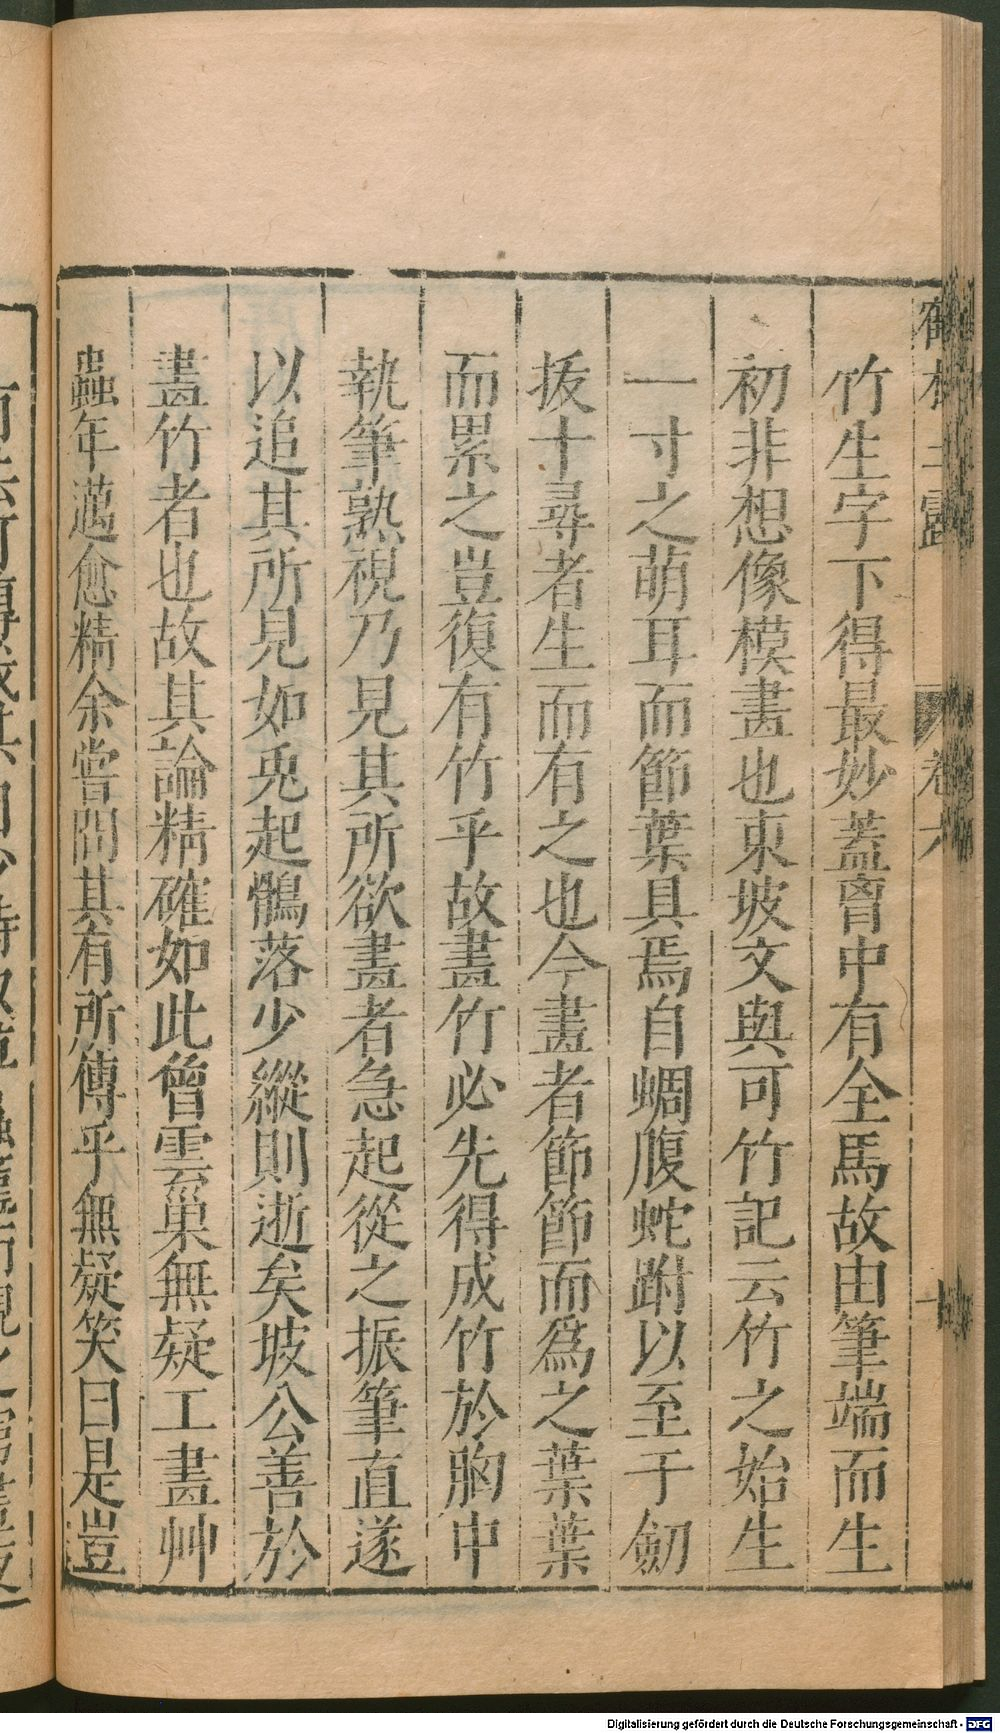 竹生字下得最妙蓋胷中有全馬故由筆端而生
初非想像模畫也東坡文與可竹記云竹之始生
一寸之萌耳而節葉具焉自蜩腹蛇跗以至于劒
拔十尋者生而有之也今畫者節節而爲之葉葉
而累之豈復有竹乎故畫竹必先得成竹於胸中
執筆熟視乃見其所欲畫者急起從之振筆直遂
以追其所見如兎起鶻落少縱則逝矣坡公善於
畫竹者也故其論精確如此曾雲巢無疑工畫艸
蟲年邁愈精余嘗問其有所傳乎無疑笑曰是豈
卷六
Digitalisierung gefördert durch die Deutsche Forschungsgemeinschaft - DFG